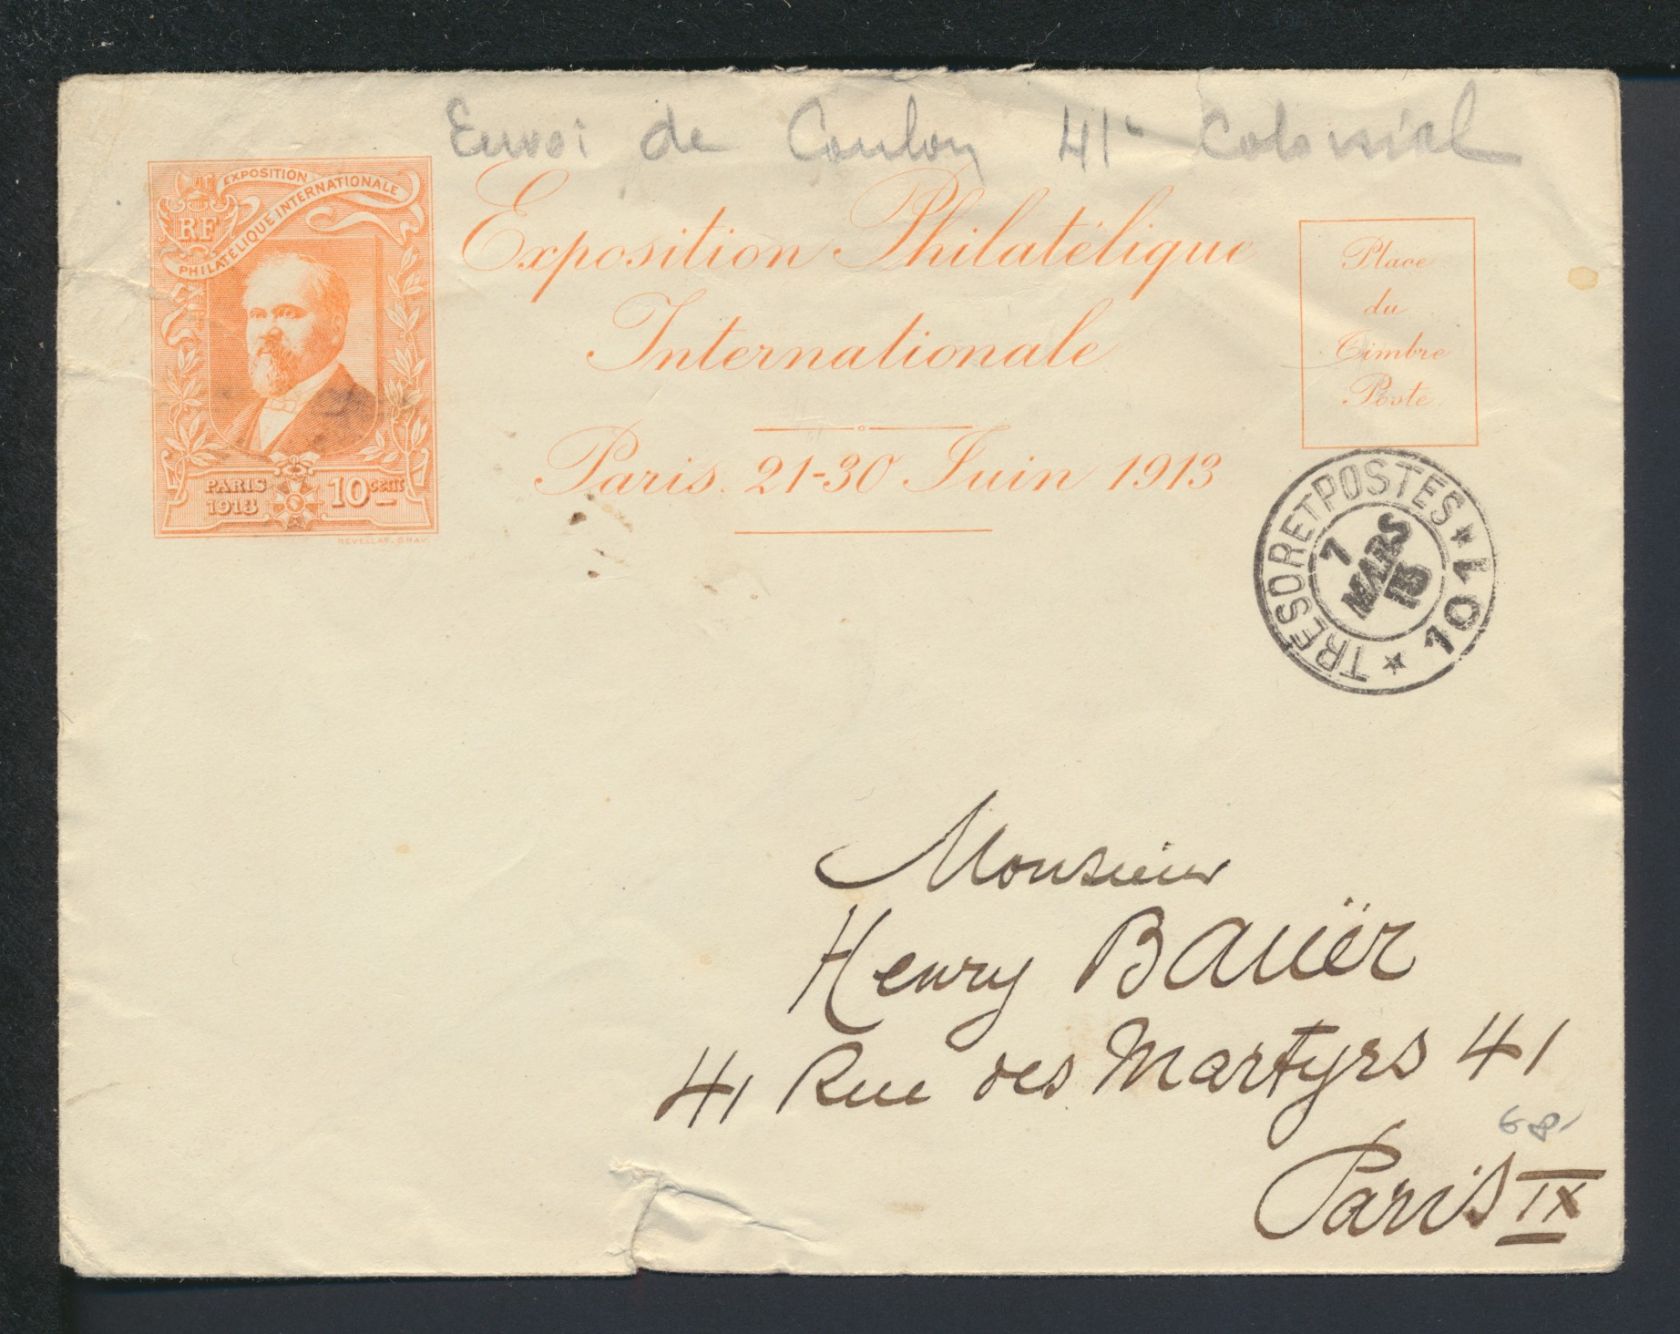 Envoi de Coulon 41e Colonial
EXPOSITION
PHILATÉLIQUE INTERNATIONALE
RF
PARIS
1913
10 CENT
REVELLAT. GRAV.
Exposition Philatélique
Internationale
Paris. 21-30 Juin 1913
Place
du
Timbre
Poste
TRÉSOR ET POSTES * 101 *
7
MARS
15
Monsieur
Henry Bauër
41 Rue des Martyrs 41
68,
Paris IX